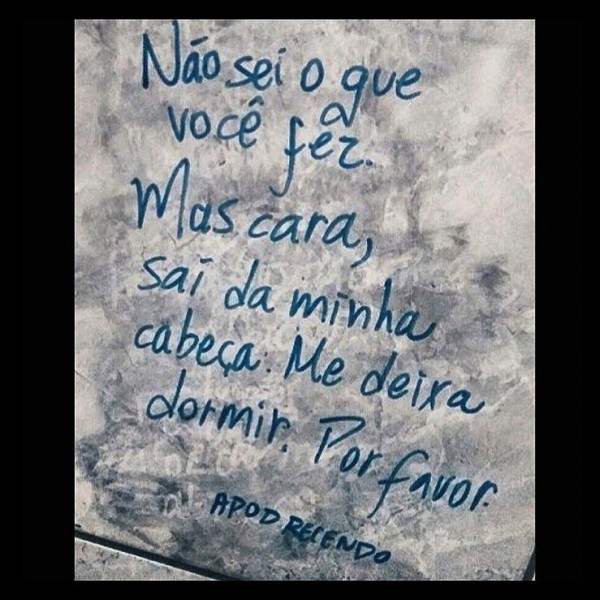 Não sei o que
você fez.
Mas cara,
sai da minha
cabeça. Me deixa
dormir. Por favor.
APODRECENDO